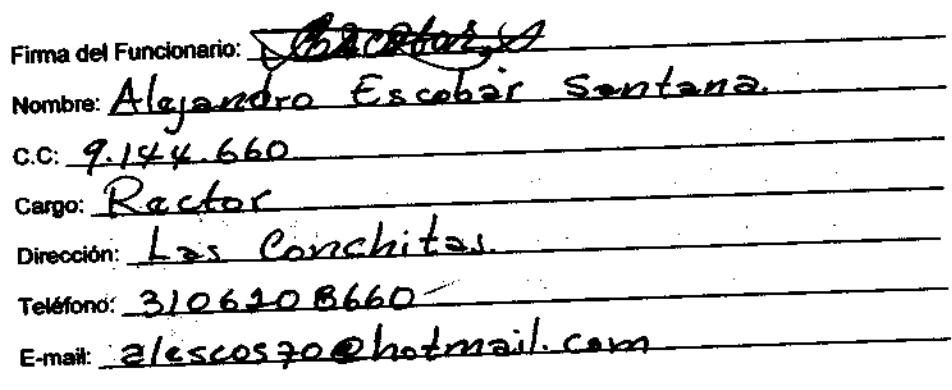 Firma del Funcionario:
Nombre: Alejandro Escobar Santana.
C.C: 9.144.660
Cargo: Rector
Dirección: Las Conchitas.
Teléfono: 3106208660
E-mail: alescos70@hotmail.com